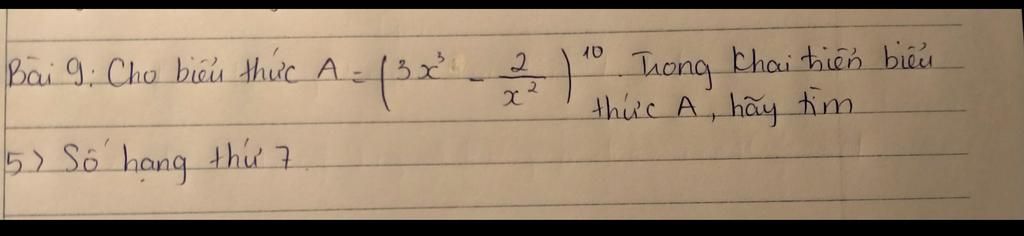 Bài 9: Cho biểu thức A = (3x³ - 2/x²)¹⁰. Trong khai triển biểu
thức A, hãy tìm
5) Số hạng thứ 7